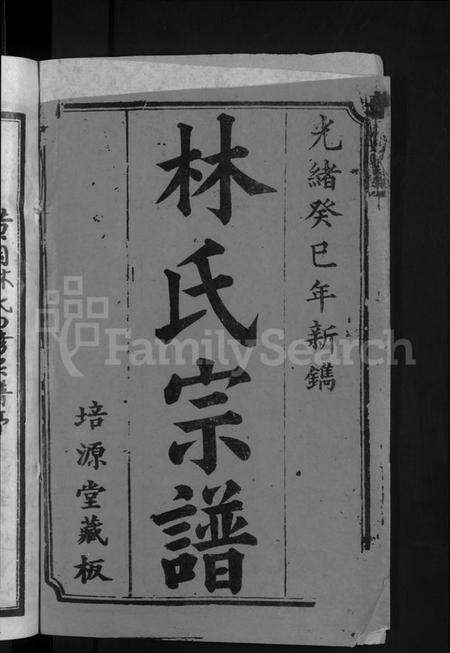 光緒癸巳年新鐫
林氏宗譜
培源堂藏板
FamilySearch